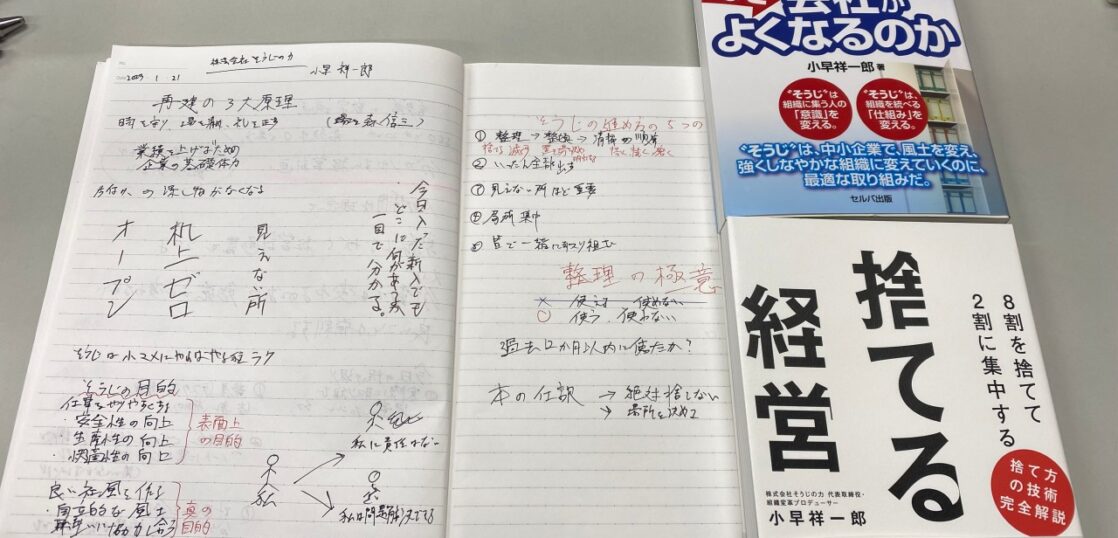 株式会社そうじの力
2025.1.21
小早祥一郎
再建の3大原理
時を守り、場を清め、礼を正す
(森信三)
業績を上げるための
企業の基礎体力
の探し物がなくなる
今日入った新人でも
どこに何があるか
一目で分かる。
見えない所
机上ゼロ
オープン
そうじは小マメにやればやる程ラク
そうじの目的
仕事をやりやすくする
安全性の向上
生産性の向上
・快適性の向上
表面上
の目的
良い社風を作る
・自立的な風土
協力し合う
真の
目的
私
私に責任はない
私は問題解決できる
そうじの進め方の5つの
① 整理→整頓→清掃の順番
捨てる 減らす
② いったん全部出す
見えない所ほど重要
局所集中
皆で一緒に取り組む
整理の極意
× 使える 使えない
○ 使う、使わない
過去12か月以内に使たか?
本の仕訳 → 絶対捨しない
→ 場所を決めて
会社が
よくなるのか
小早祥一郎 著
“そうじ”は
組織に集う人の
「意識」を
変える。
“そうじ”は、
組織を統べる
「仕組み」を
変える。
“そうじ”は、中小企業で、風土を変え、
強くしなやかな組織に変えていくのに、
最適な取り組みだ。
セルバ出版
8割を捨てて
2割に集中する
捨てる
経営
捨て方
の技術
完全解説
株式会社そうじの力 代表取締役・
組織変革プロデューサー
小早祥一郎